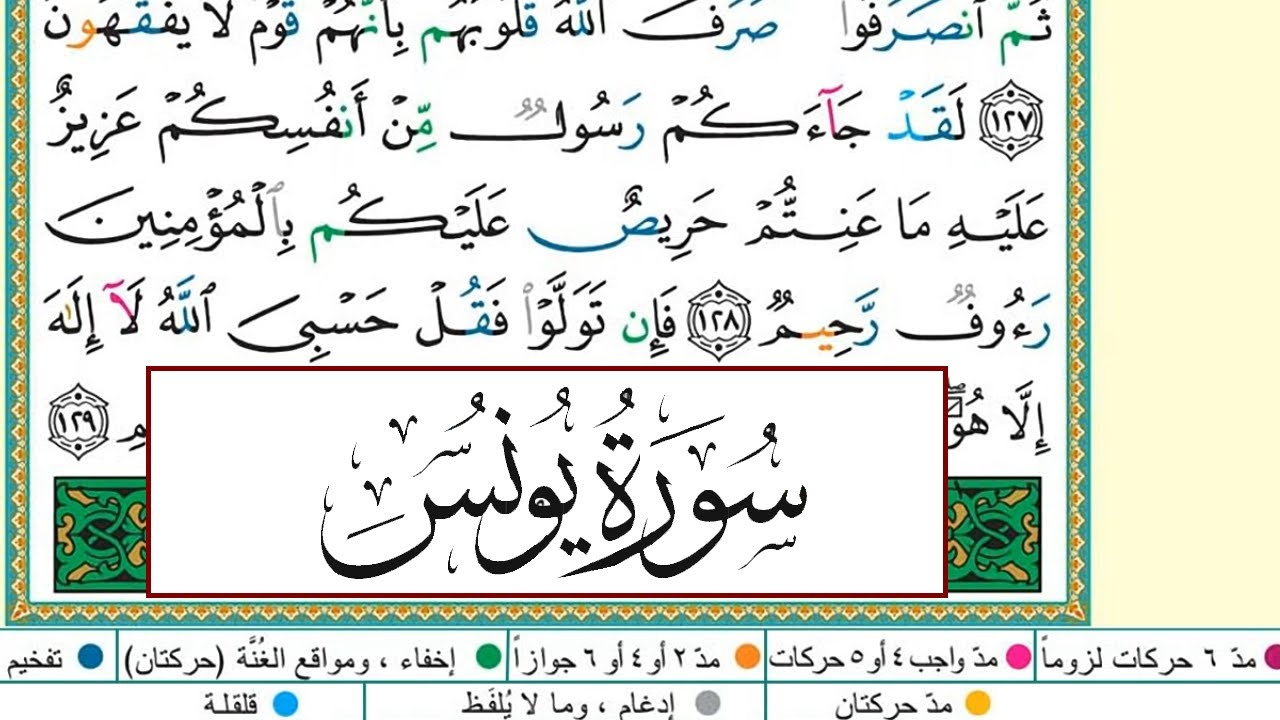 ثُمَّ ٱنصَرَفُوا۟ صَرَفَ ٱللَّهُ قُلُوبَهُم بِأَنَّهُمْ قَوْمٌ لَّا يَفْقَهُونَ
١٢٧ لَقَدْ جَآءَكُمْ رَسُولٌ مِّنْ أَنفُسِكُمْ عَزِيزٌ
عَلَيْهِ مَا عَنِتُّمْ حَرِيصٌ عَلَيْكُم بِٱلْمُؤْمِنِينَ
رَءُوفٌ رَّحِيمٌ ١٢٨ فَإِن تَوَلَّوْا۟ فَقُلْ حَسْبِىَ ٱللَّهُ لَآ إِلَٰهَ
إِلَّا هُوَ ١٢٩
سُورَةُ يُونُسَ
مدّ ٦ حركات لزوماً مدّ واجب ٤ أو ٥ حركات مدّ ٢ أو ٤ أو ٦ جوازاً إخفاء ، ومواقع الغُنَّة (حركتان) تفخيم
مدّ حركتان إدغام ، وما لا يُلفَظ قلقلة